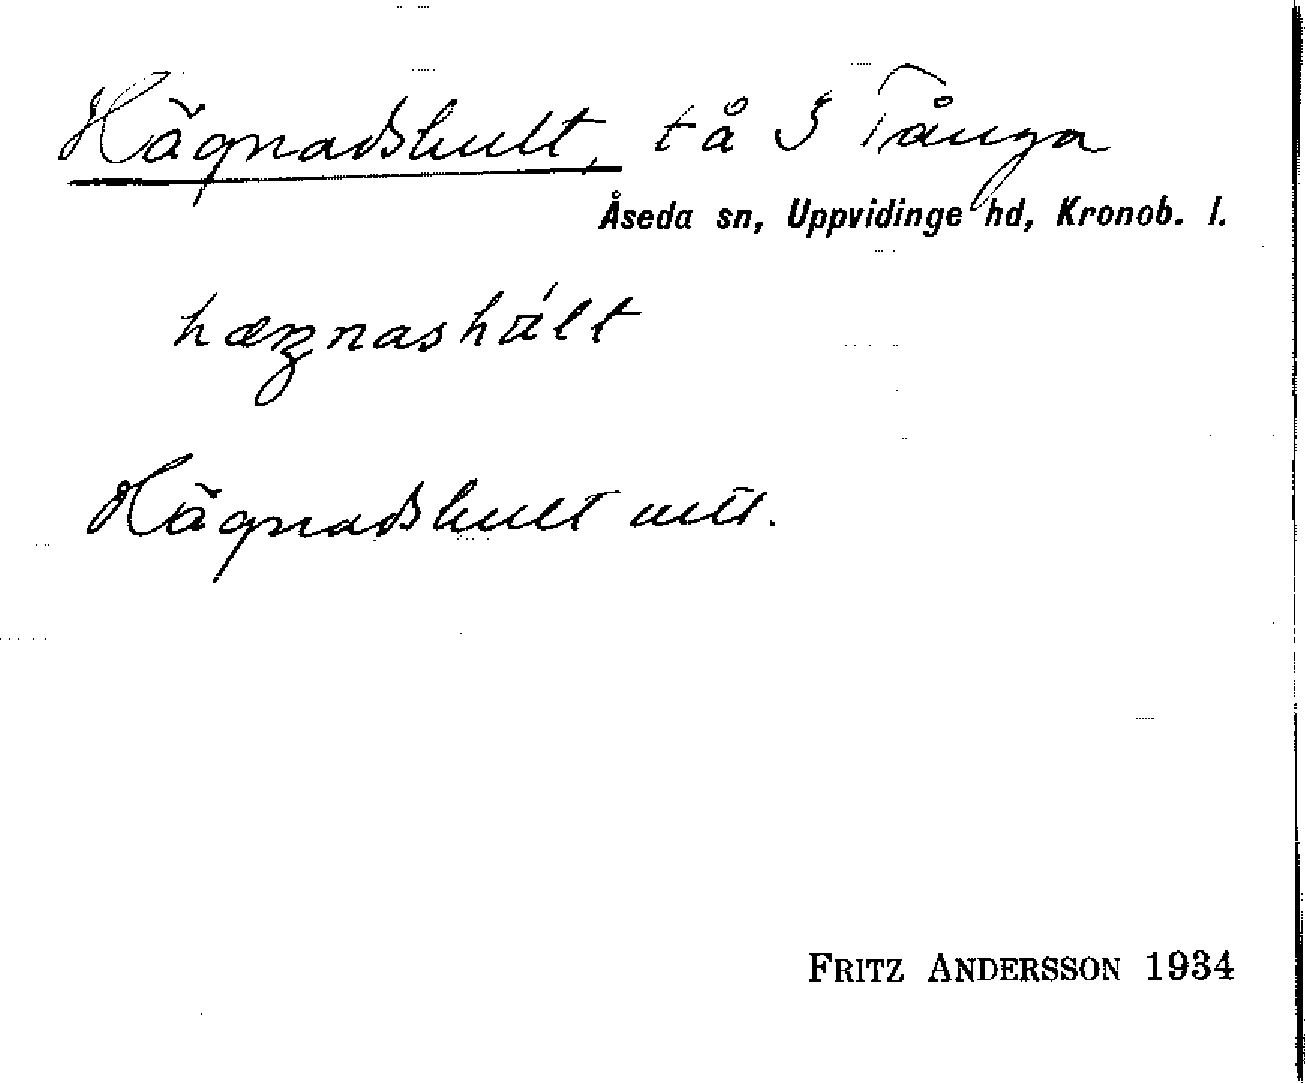 Hägnadshult, tå S Tånga
Åseda sn, Uppvidinge hd, Kronob. l.
hæŋnashúlt
Hägnadshult utt.
FRITZ ANDERSSON 1934